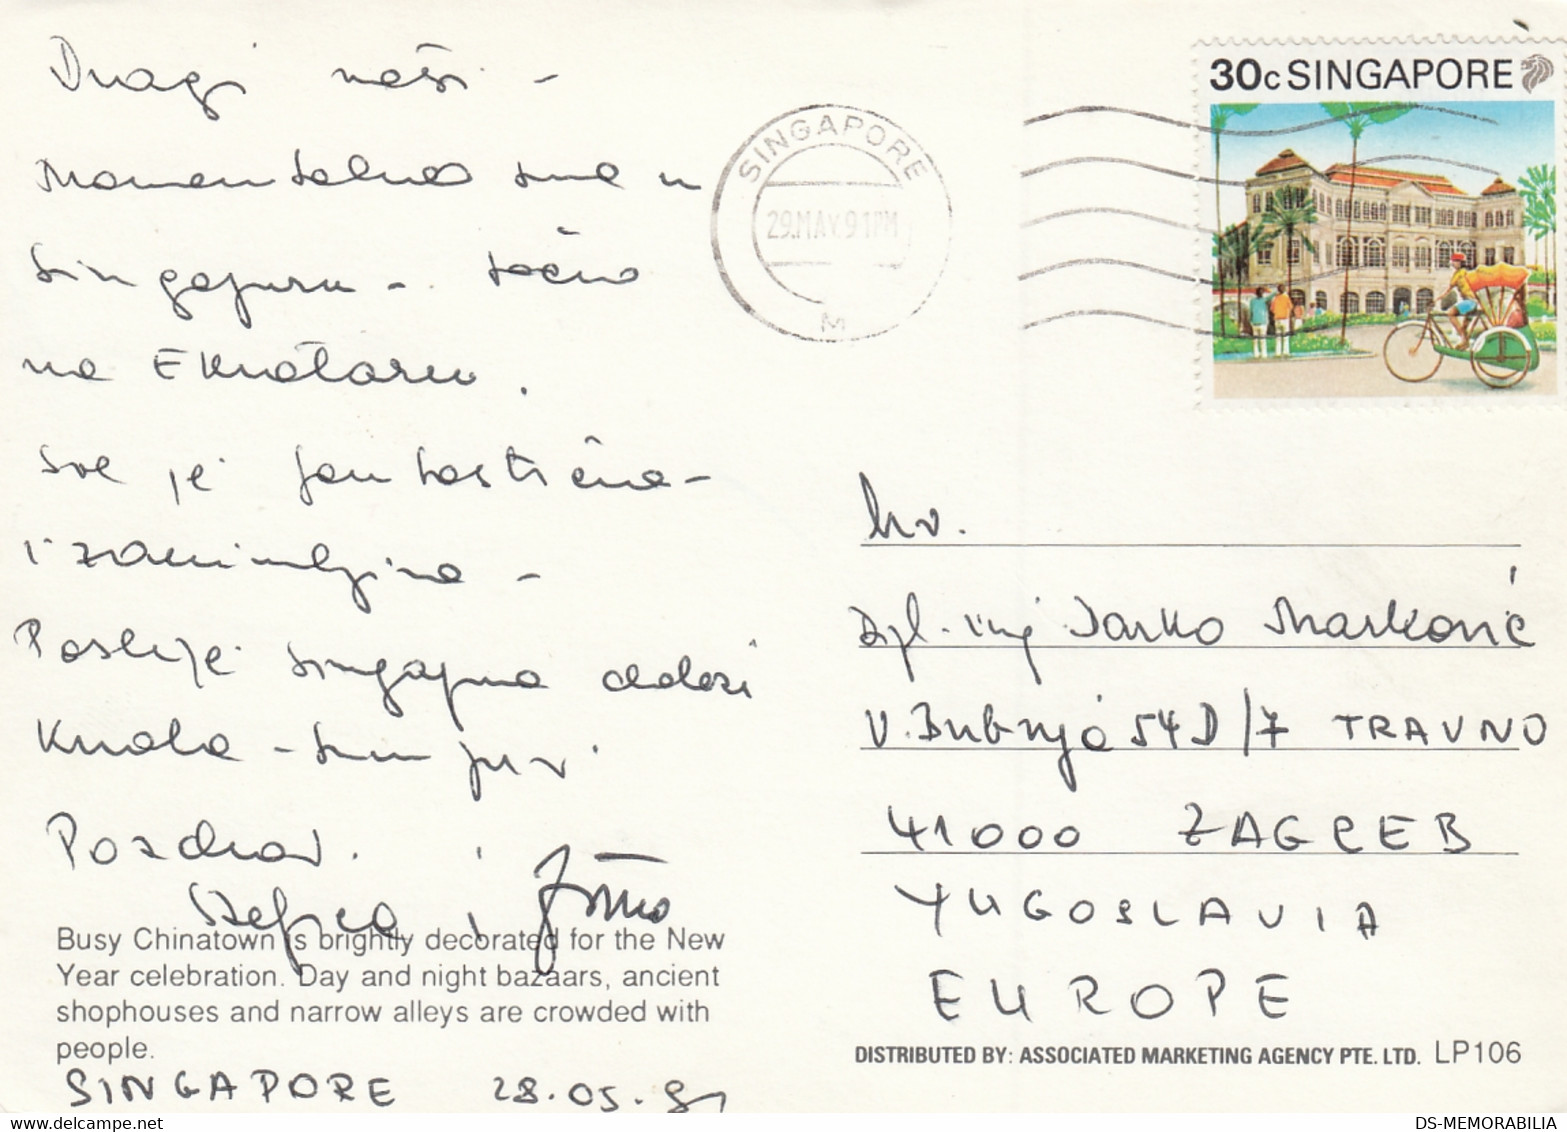 Dragi naši -
Momentalno smo u
Singapuru - točno
na Ekvatoru.
Sve je fantastično -
i zanimljivo -
Poslije Singapura dolazi
Kuala - Lumpur.
Pozdrav.
i
Busy Chinatown is brightly decorated for the New
Year celebration. Day and night bazaars, ancient
shophouses and narrow alleys are crowded with
people.
SINGAPORE 28.05.91
SINGAPORE
29.MAY.91PM
M
30c SINGAPORE
Dipl. inj Marković
V. Bubnja 54D/7 TRAVNO
41000 ZAGREB
YUGOSLAVIA
EUROPE
DISTRIBUTED BY: ASSOCIATED MARKETING AGENCY PTE. LTD. LP106
DS-MEMORABILIA